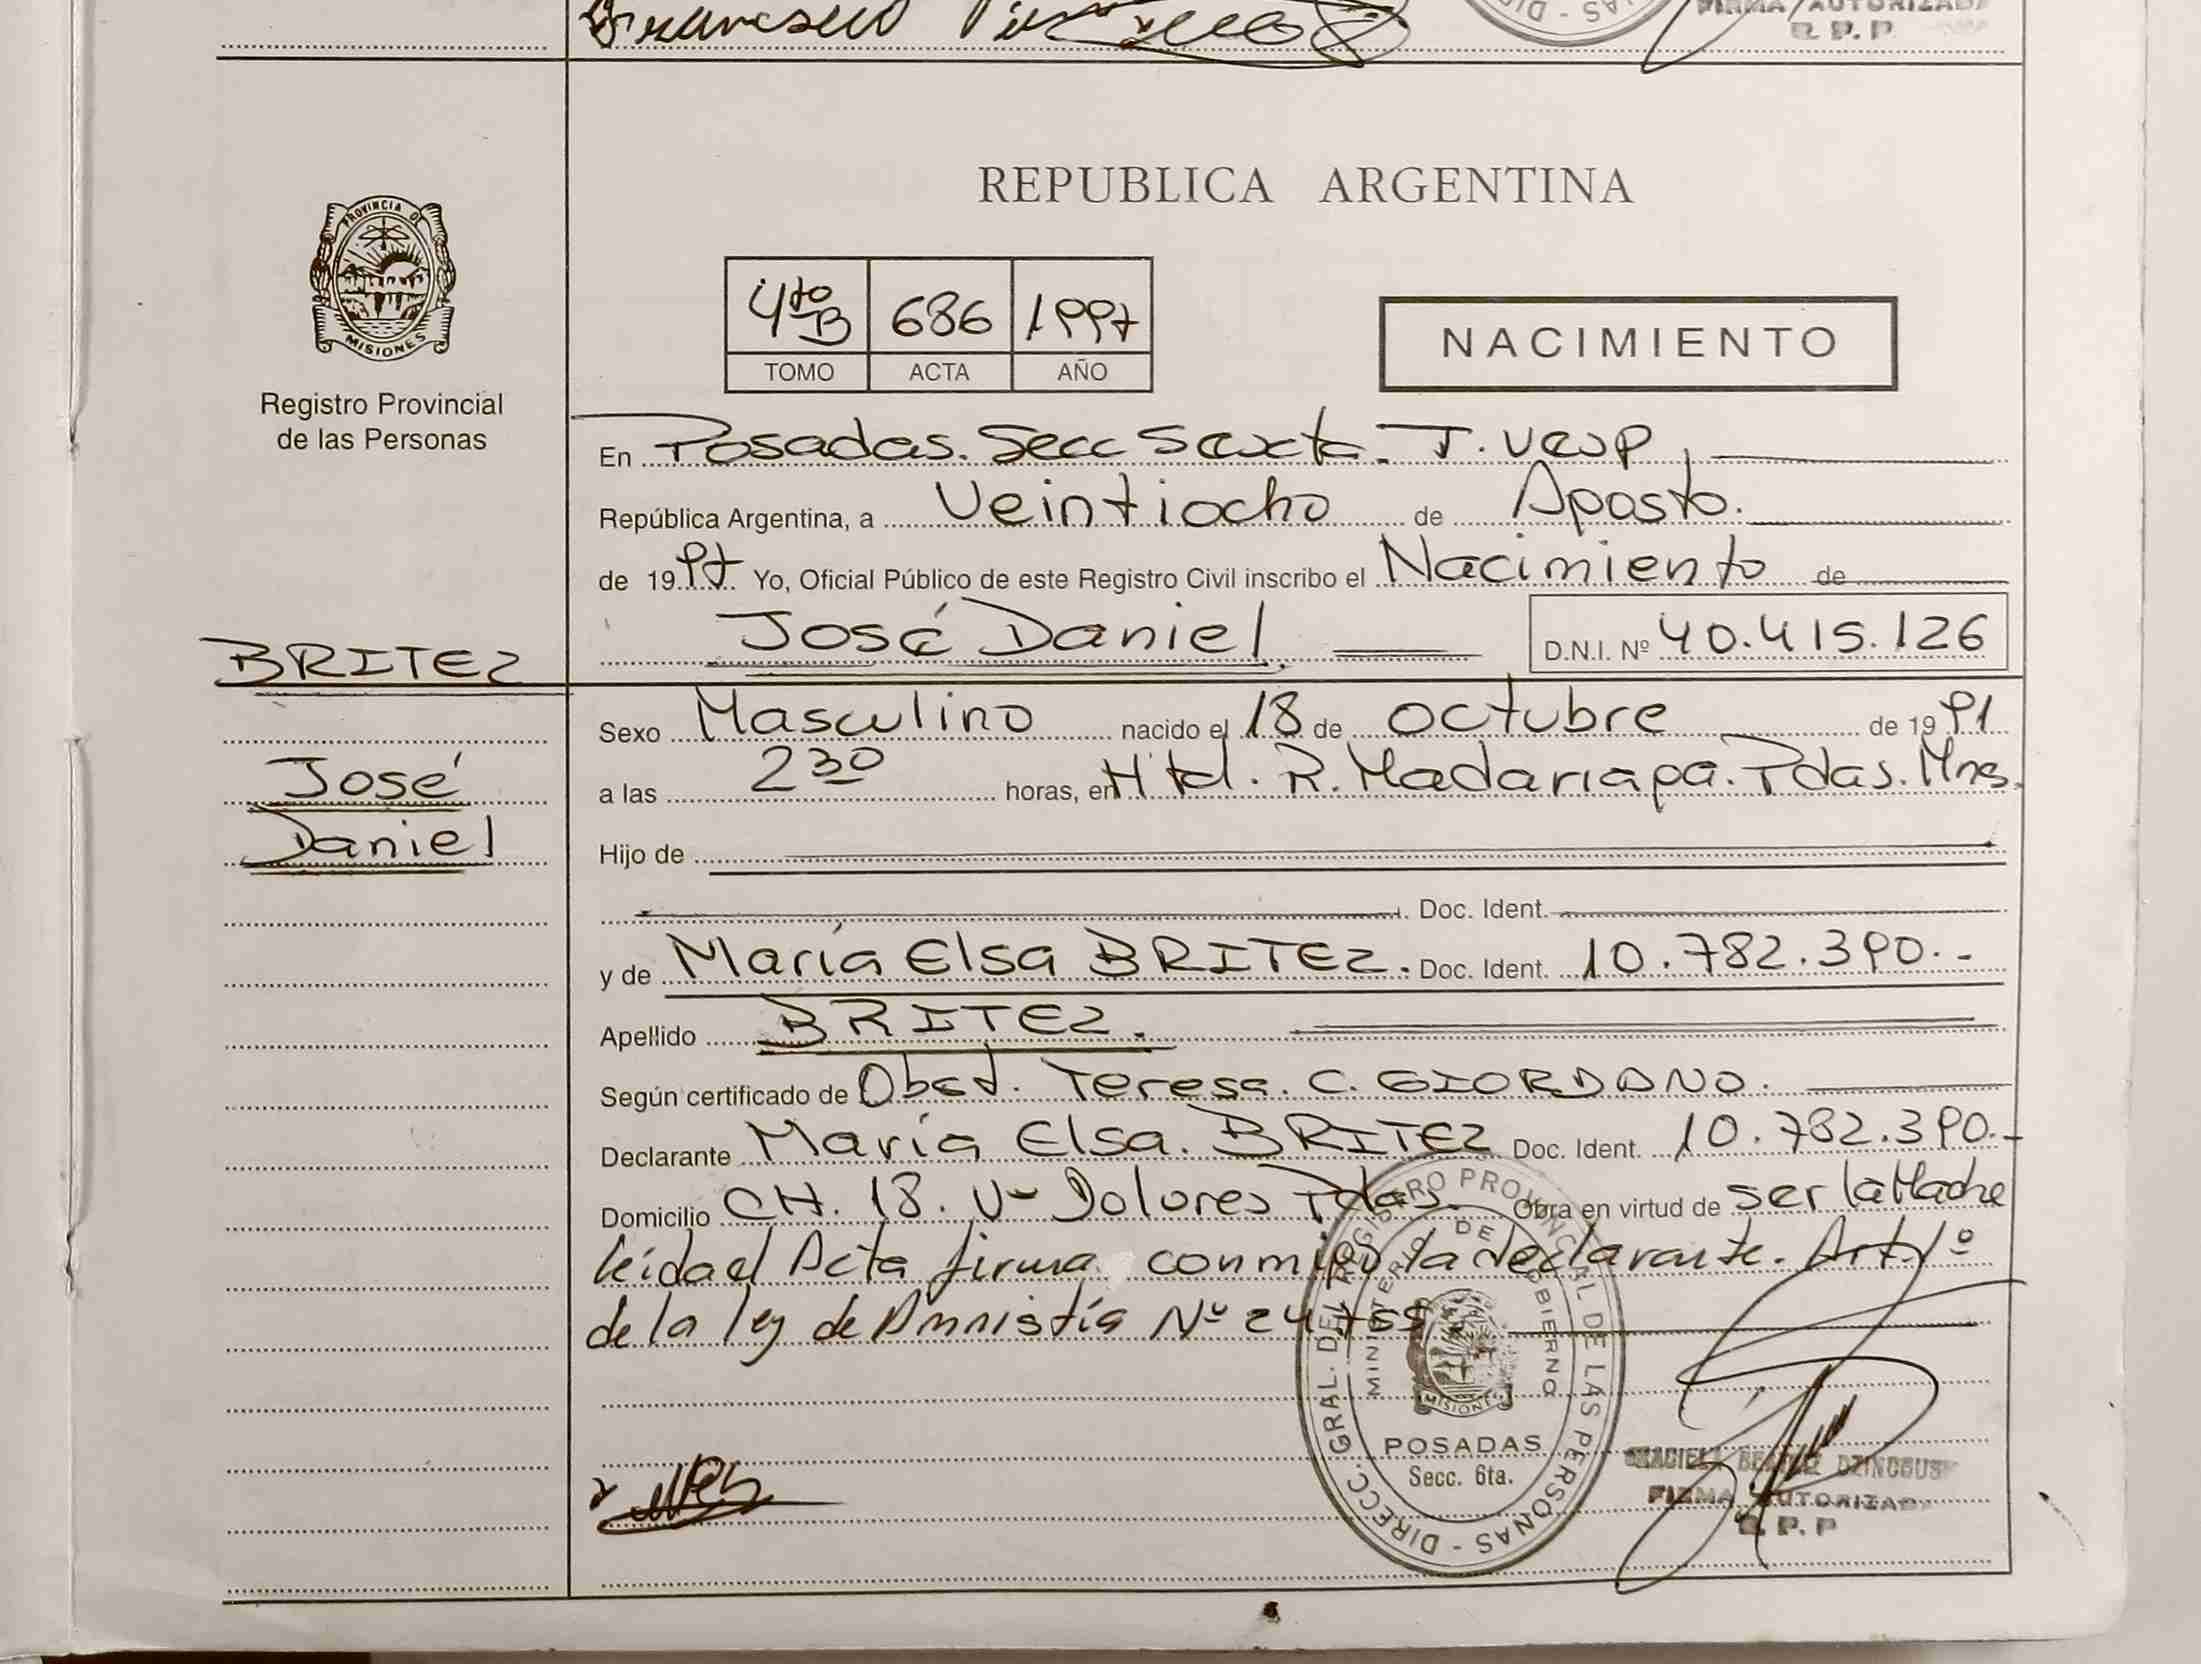 FIRMA AUTORIZADA
R. P. P
REPUBLICA ARGENTINA
PROVINCIA DE
MISIONES
Registro Provincial
de las Personas
4to B 686 1997
TOMO ACTA AÑO
NACIMIENTO
En Posadas. Secc Sexta. T. Vesp.
República Argentina, a Veintiocho de Agosto.
de 1997 Yo, Oficial Público de este Registro Civil inscribo el Nacimiento de
José Daniel. D.N.I. Nº 40.415.126
BRITEZ
José
Daniel
Sexo Masculino nacido el 18 de octubre de 1991
a las 2 30 horas, en Htal. R. Madariaga. Pdas. Mns.
Hijo de
Doc. Ident.
y de María Elsa BRITEZ. Doc. Ident. 10.782.390.-
Apellido BRITEZ.
Según certificado de Obst. Teresa. C. GIORDANO.
Declarante María Elsa. BRITEZ Doc. Ident. 10.782.390.-
Domicilio CH. 18. Vª Dolores Pdas. Obra en virtud de ser la Madre
leída el Acta firma conmigo la declarante. Art. 1º
de la ley de Amnistía Nº 24755.
DIRECC. GRAL. DEL REGISTRO PROVINCIAL DE LAS PERSONAS
MINISTERIO DE GOBIERNO
MISIONES
POSADAS
Secc. 6ta.
GRACIELA BEATRIZ
FIRMA AUTORIZADA
R. P. P